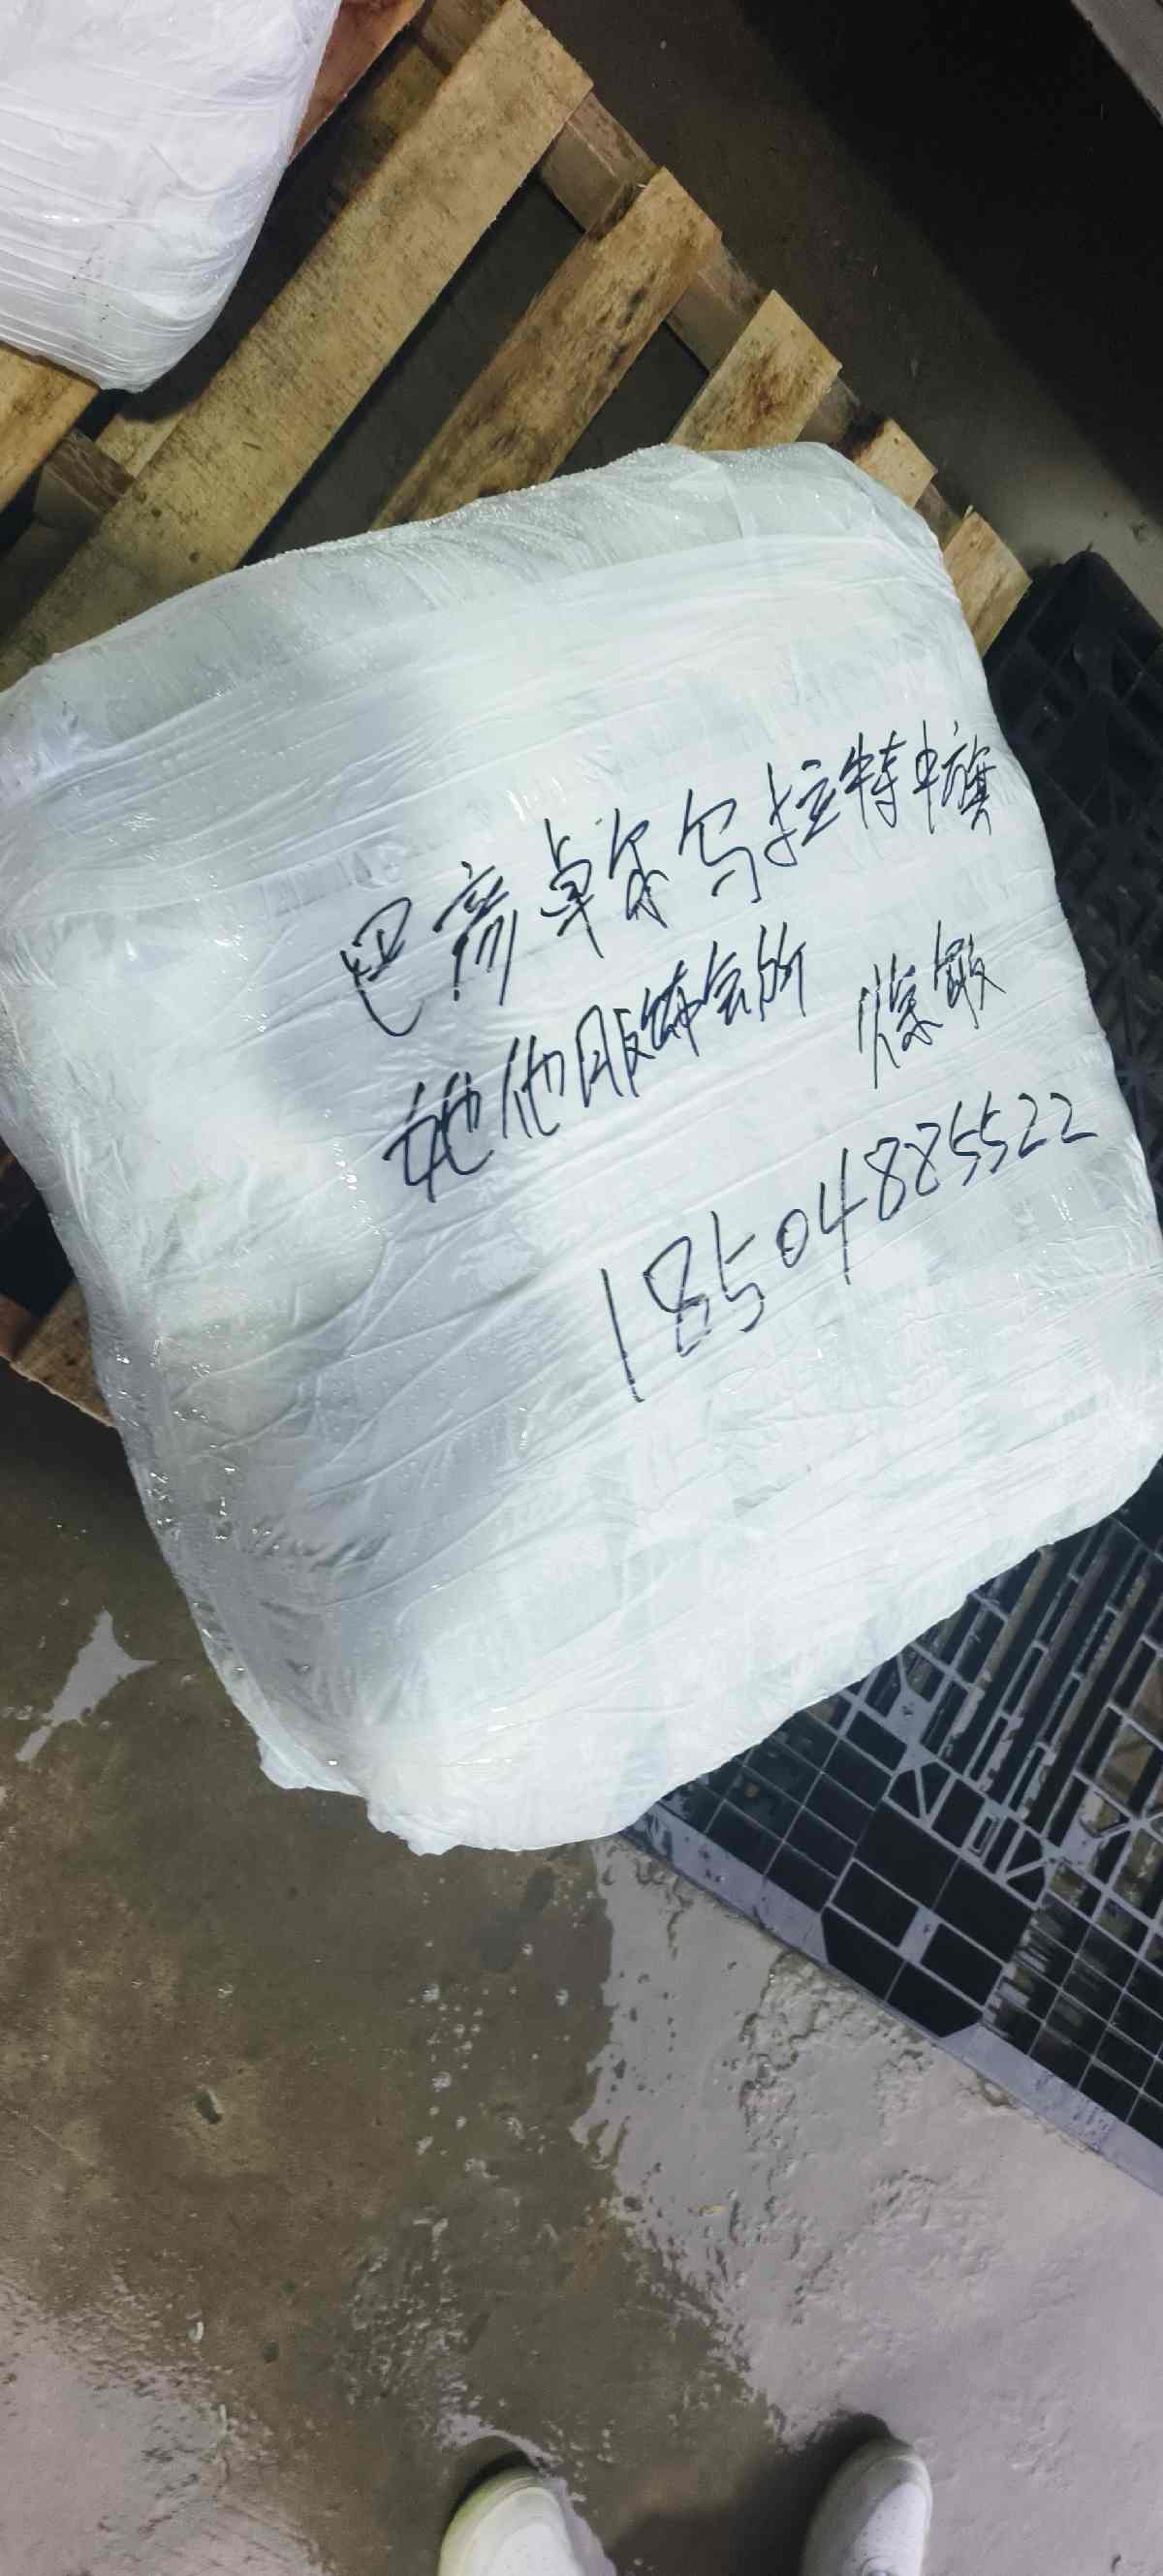 巴彦卓尔乌拉特中旗
她他服饰会所 徐敏
18504885522